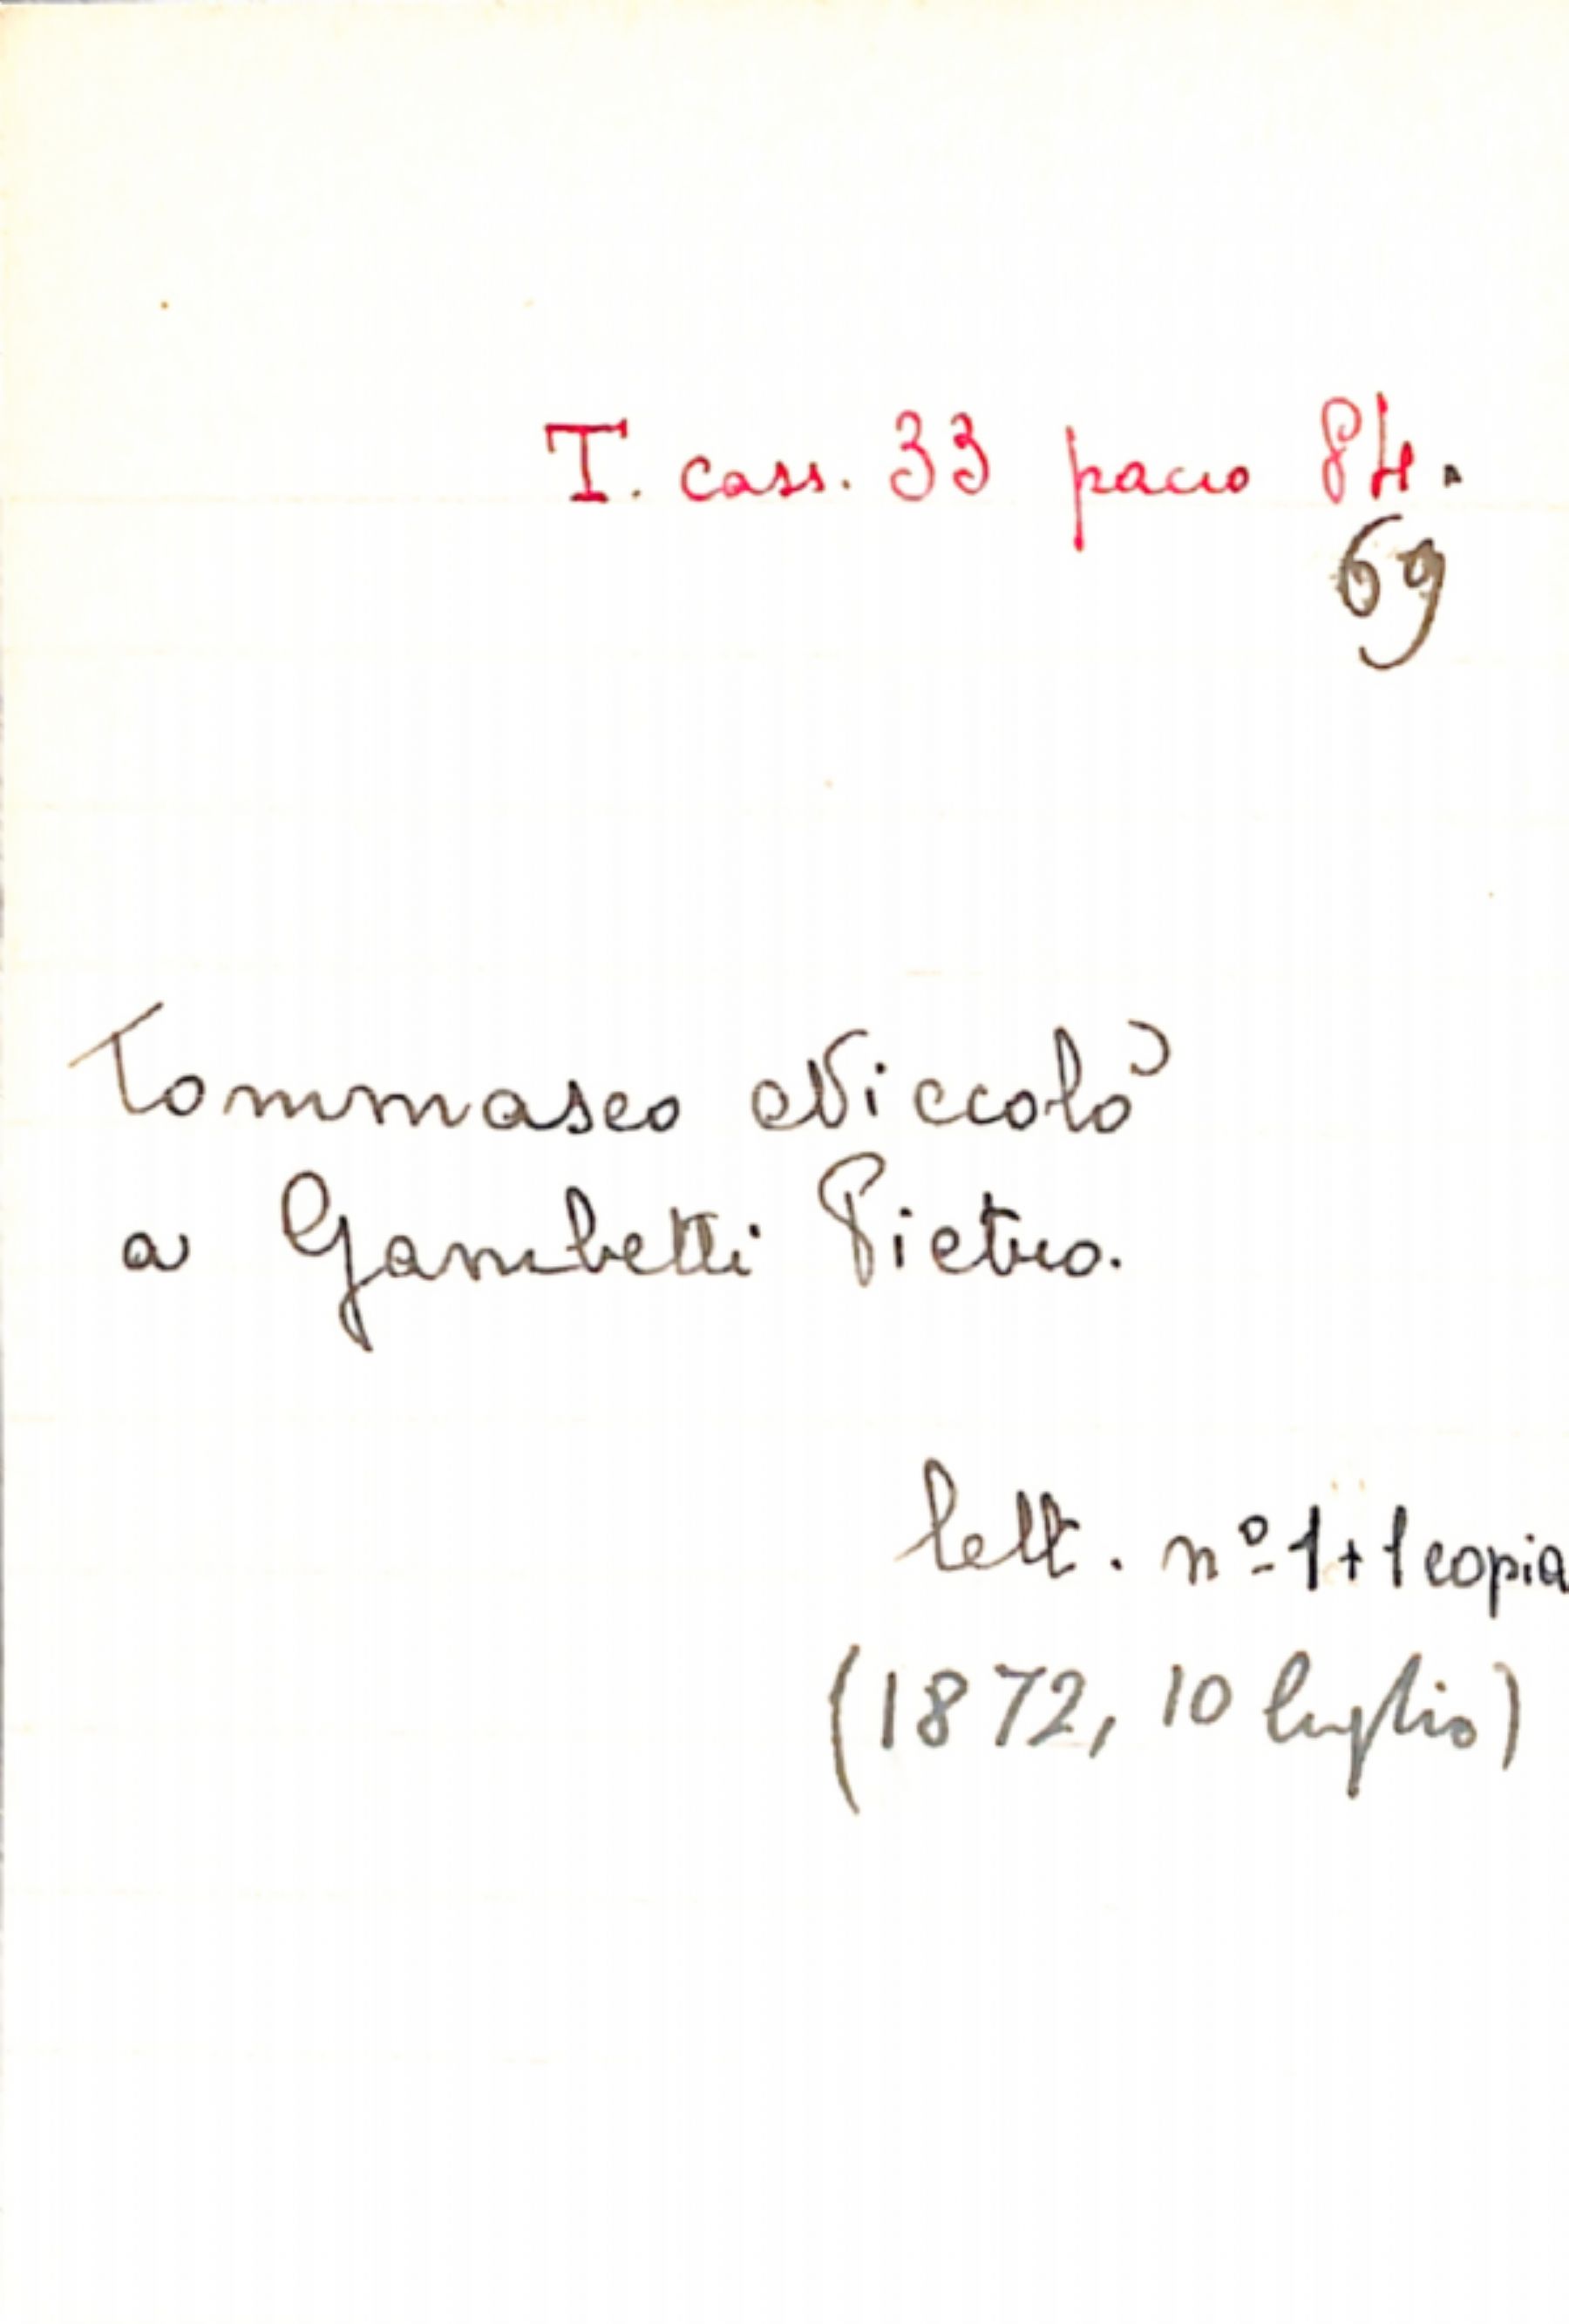 T. cass. 33 pacco 84.
69
Tommaseo Niccolò
a Gambetti Pietro.
lett. nº 1 + 1 copia
(1872, 10 luglio)